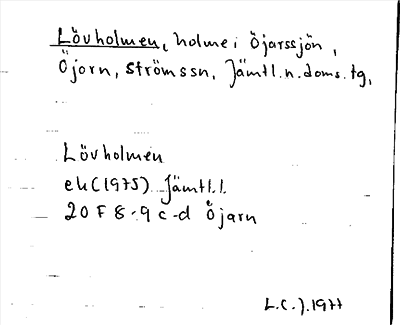 Lövholmen, holme i Öjarssjön,
Öjorn, Strömssn, Jämtl.n.doms.tg,
Lövholmen
ek(1975) Jämtl.l.
20 F 8-9 c-d Öjarn
L.C.J.1977